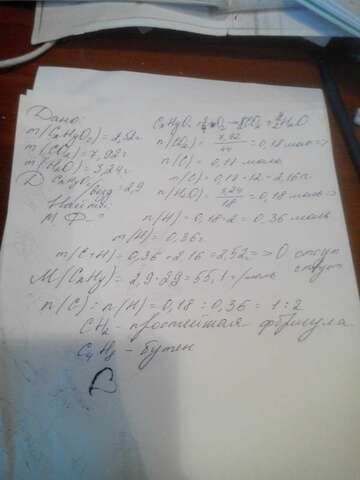 Дано:
m(CxHyOz)=2,52г
m(CO₂)=7,92г
m(H₂O)=3,24г
D CxHyOz/возд=2,9
Найти:
М.Ф.-?
n(CO₂)=7,92/44=0,18 моль=>
n(C)=0,18 моль
m(C)=0,18·12=2,16г
n(H₂O)=3,24/18=0,18 моль=>
n(H)=0,18·2=0,36 моль
m(H)=0,36г
m(C+H)=0,36+2,16=2,52=>O отсутствует
M(CxHy)=2,9·29=55,1 г/моль
n(C):n(H)=0,18:0,36=1:2
CH₂-простейшая формула
C₄H₈-бутен